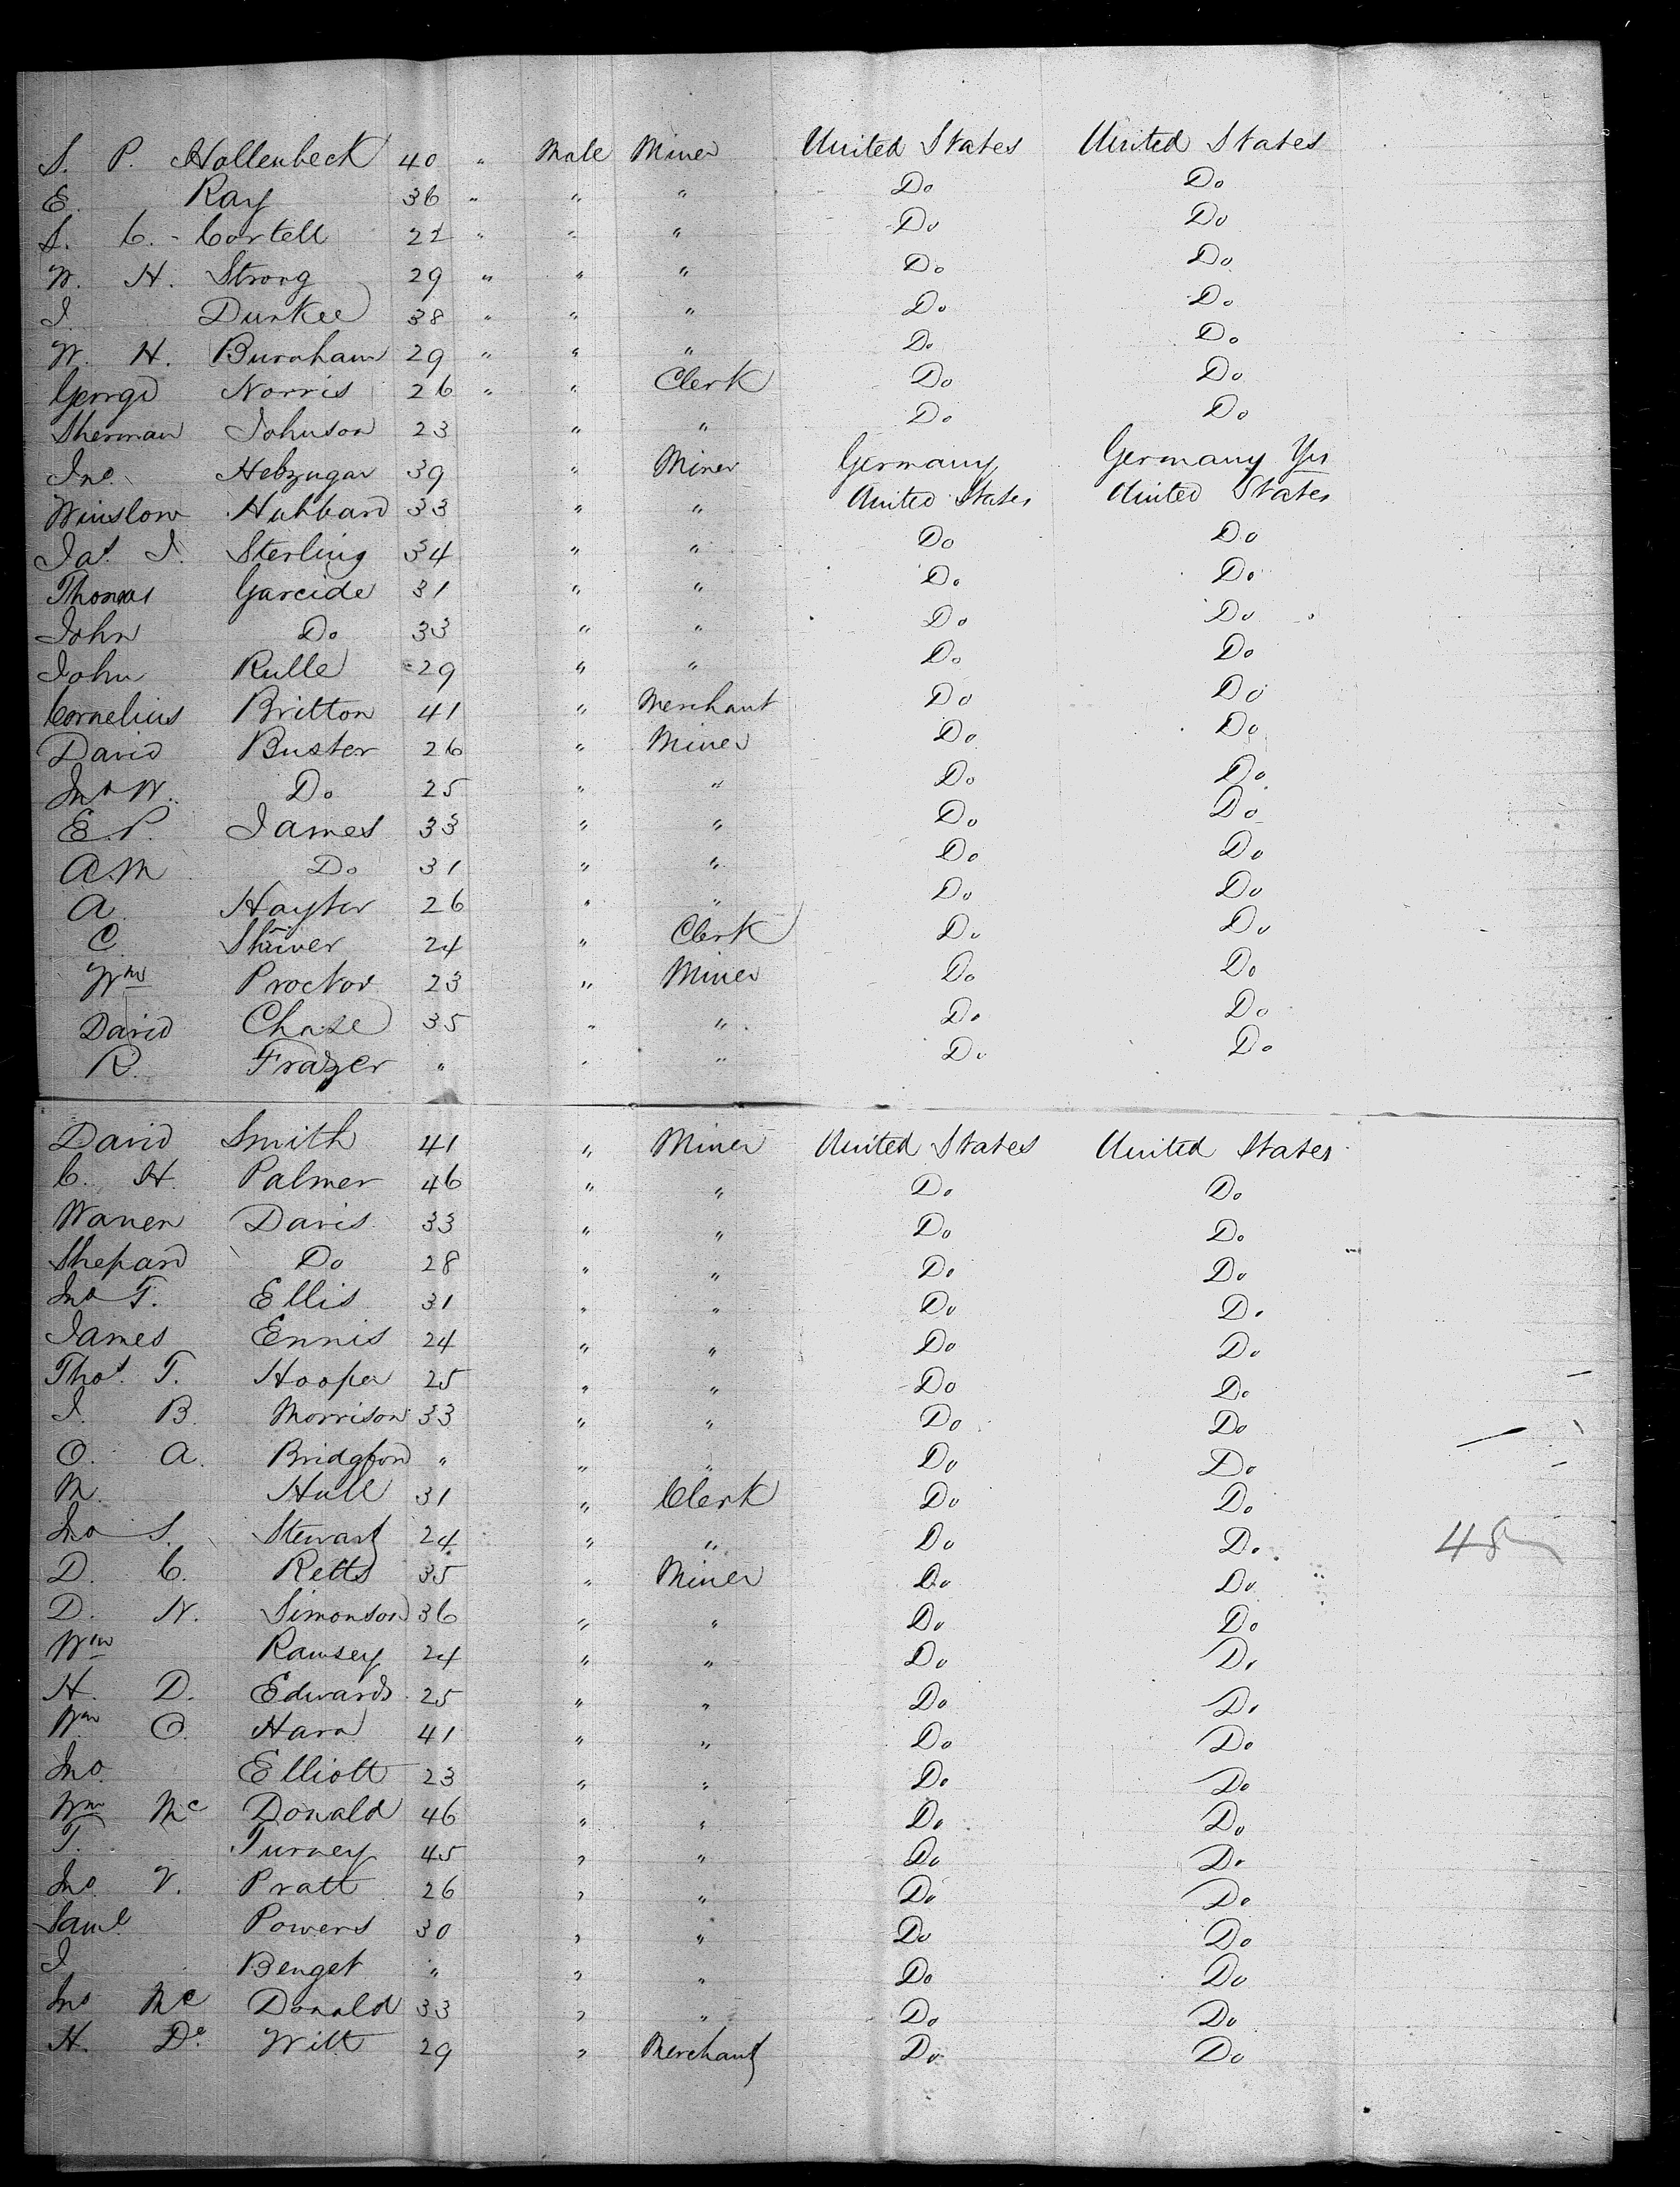 S. P. Hollenbeck 40 " Male Miner United States United States
E. Ray 36 " " " Do Do
S. C. Cortell 22 " " " Do Do
W. H. Strong 29 " " " Do Do
J. Durkee 38 " " " Do Do
W. H. Burnham 29 " " " Do Do
George Norris 26 " " Clerk Do Do
Sherman Johnson 23 " " Do Do
Jno. 39 " Miner Germany Germany Yes
Winslow Hubbard 33 " " United States United States
Jas. J. Sterling 34 " " Do Do
Thomas Garcide 31 " " Do Do
John Do 33 " " Do Do
John Rulle 29 " " Do Do
Cornelius Britton 41 " Merchant Do Do
David Buster 26 " Miner Do Do
Jno W. Do 25 " " Do Do
E. P. James 33 " " Do Do
A. M Do 31 " " Do Do
A. Hayter 26 " " Do Do
C. Shriver 24 " Clerk Do Do
Wm Proctor 23 " Miner Do Do
David Chase 35 " " Do Do
R. Frazer " " " Do Do
David Smith 41 " Miner United States United States
C. H. Palmer 46 " " Do Do
Warren Davis 33 " " Do Do
Shepard Do 28 " " Do Do
Jno T. Ellis 31 " " Do Do
James Ennis 24 " " Do Do
Thos. T. Hooper 25 " " Do Do
J. B. Morrison 33 " " Do Do
O. A. Bridgford " " " Do Do
M. Hull 31 " Clerk Do Do
Jno S. Stewart 24 " " Do Do 48
D. C. Retts 35 " Miner Do Do
D. N. Simonson 36 " " Do Do
Wm Ramsey 24 " " Do Do
H. D. Edwards 25 " " Do Do
Wm O. Hara 41 " " Do Do
Jno. Elliott 23 " " Do Do
Wm Mc Donald 46 " " Do Do
T. Turney 45 " " Do Do
Jno. V. Pratt 26 " " Do Do
Saml. Powers 30 " " Do Do
J Benget " " " Do Do
Jno Mc Donald 33 " " Do Do
H. De Witt 29 " Merchant Do Do